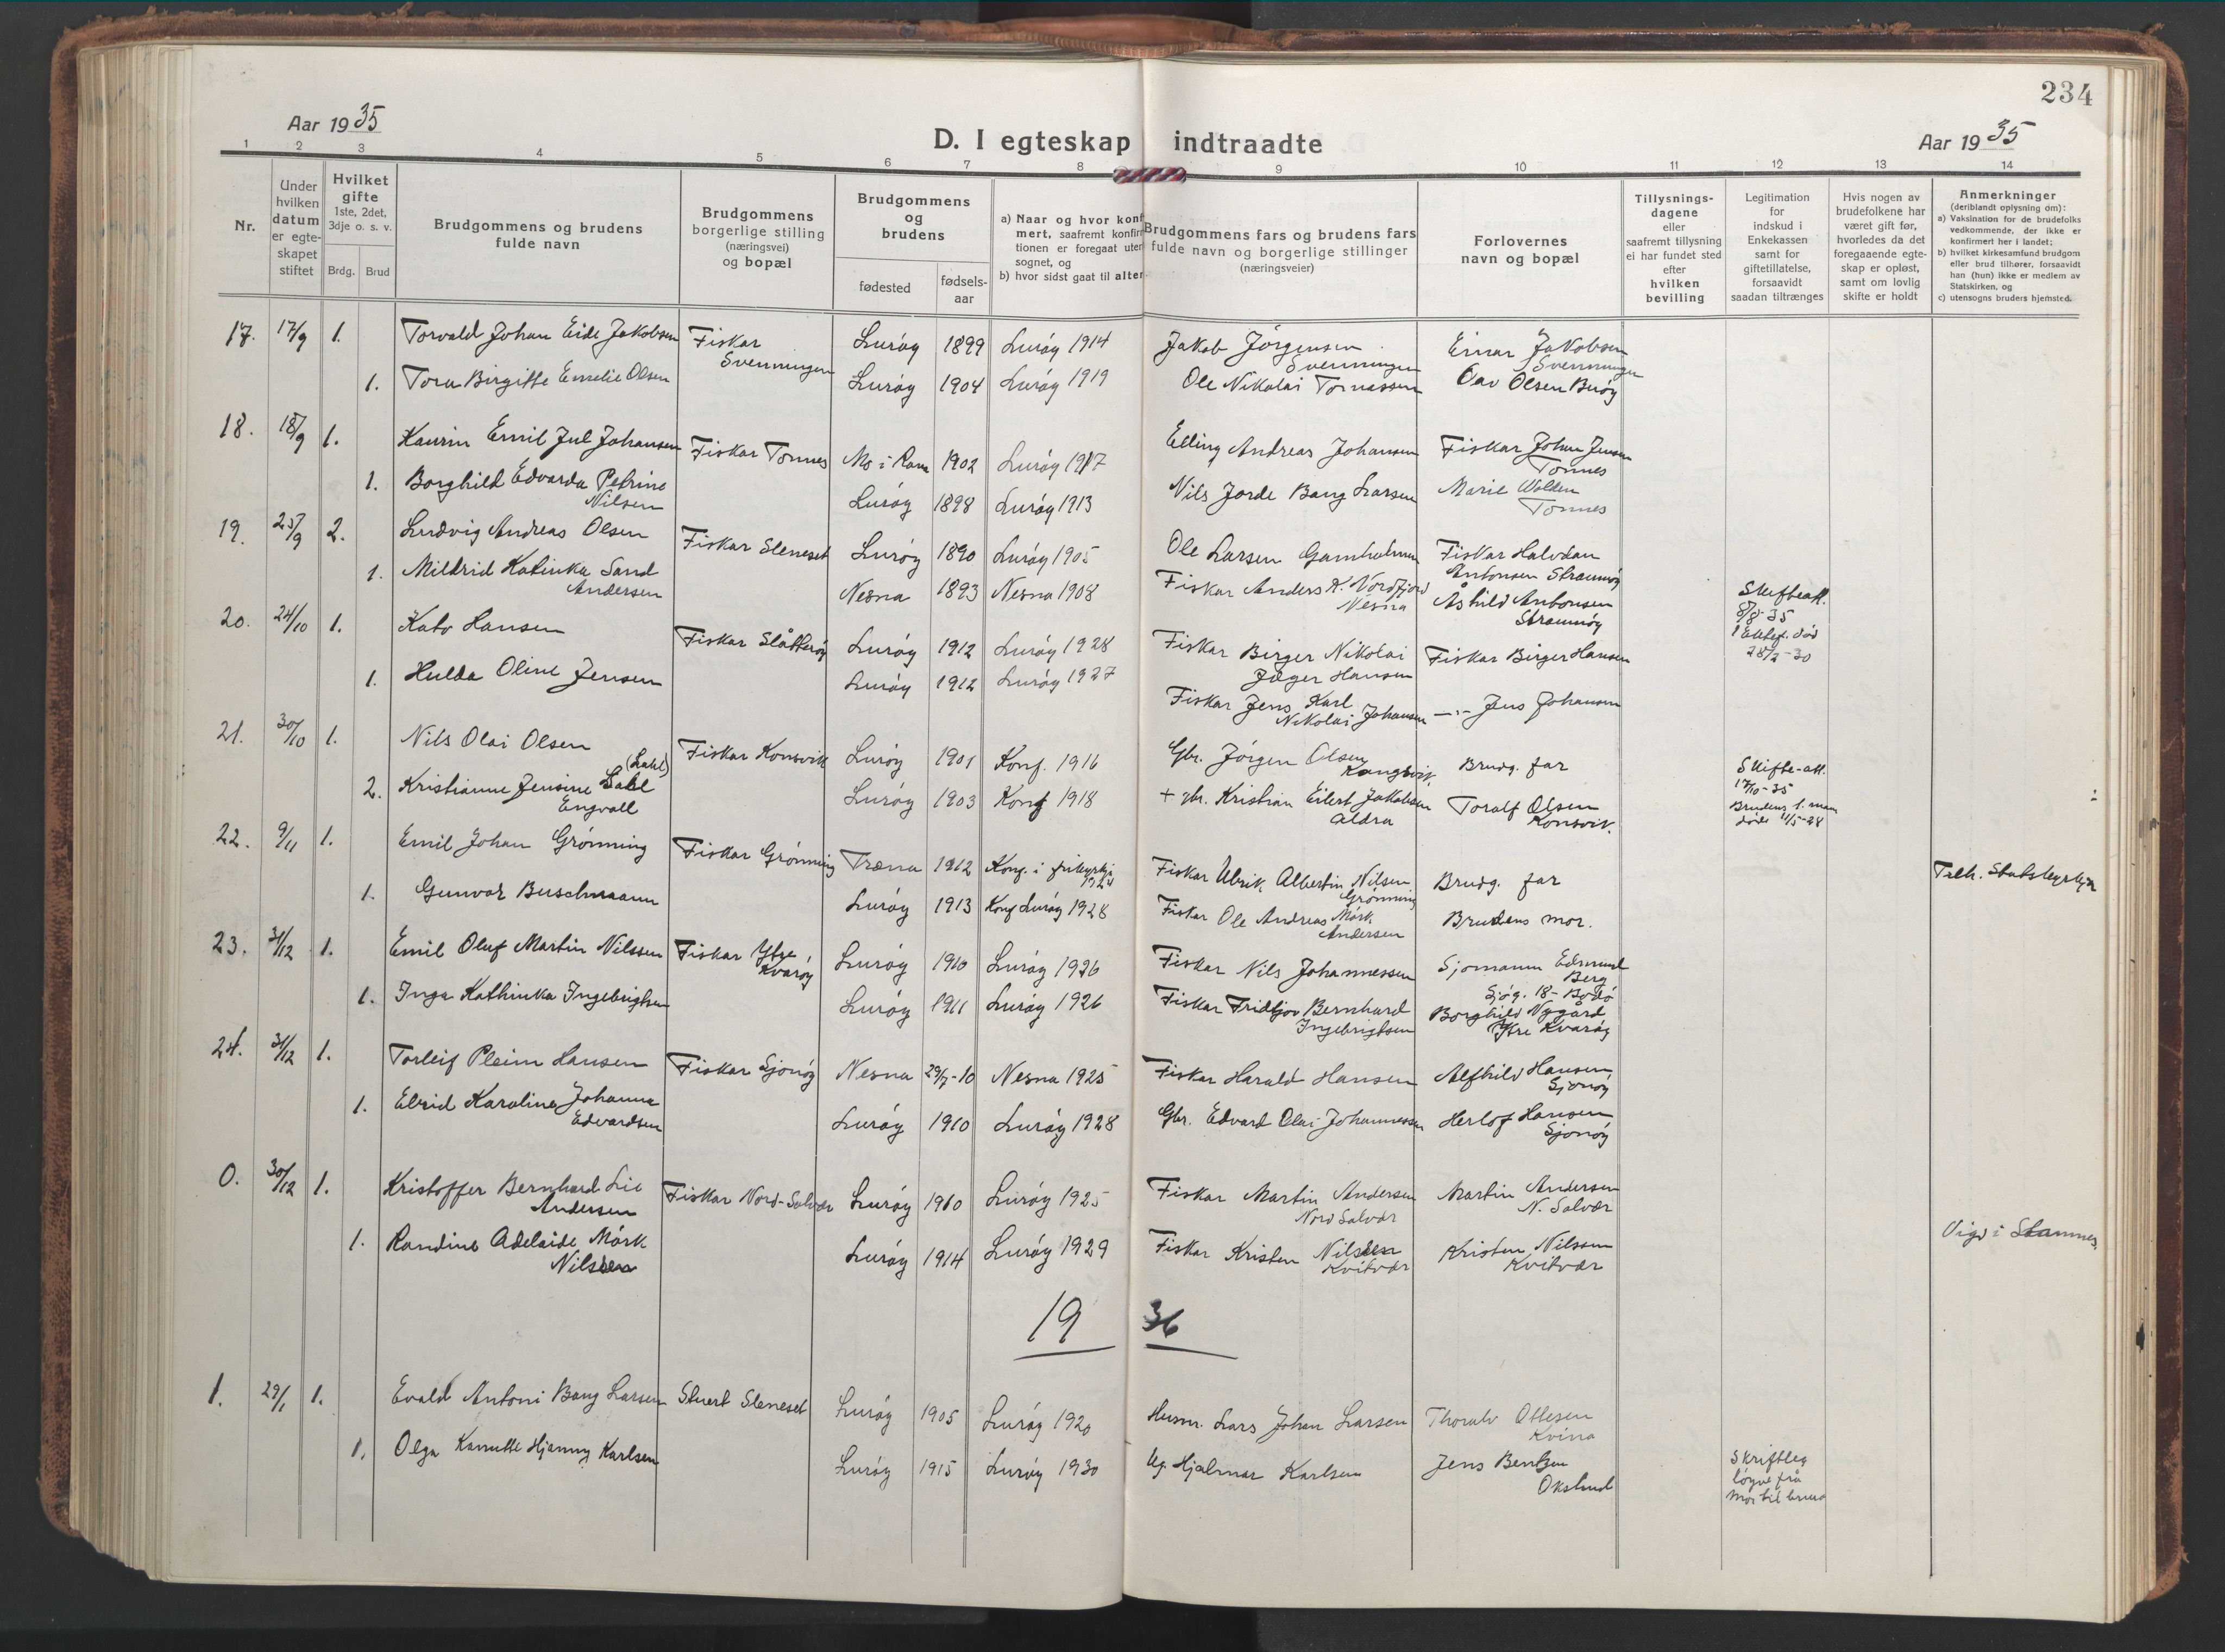 234
Aar 1935
D. I egteskap indtraadte
Aar 1935
1 2 3 4 5 6 7 8 9 10 11 12 13 14
Nr.
Under hvilken datum er egteskapet stiftet
Hvilket gifte 1ste, 2det, 3dje o. s. v.
Brdg. Brud
Brudgommens og brudens fulde navn
Brudgommens borgerlige stilling (næringsvei) og bopæl
Brudgommens og brudens
fødested
fødsels-aar
a) Naar og hvor konf
mert, saafremt konfir
tionen er foregaat uten
sognet, og
b) hvor sidst gaat til alter
Brudgommens fars og brudens fars
fulde navn og borgerlige stillinger
(næringsveier)
Forlovernes navn og bopæl
Tillysnings-dagene eller saafremt tillysning ei har fundet sted efter hvilken bevilling
Legitimation for indskud i Enkekassen samt for giftetillatelse, forsaavidt saadan tiltrænges
Hvis nogen av brudefolkene har været gift før, hvorledes da det foregaaende egteskap er opløst, samt om lovlig skifte er holdt
Anmerkninger
(deriblandt oplysning om):
a) Vaksination for de brudefolks vedkommende, der ikke er konfirmert her i landet;
b) hvilket kirkesamfund brudgom eller brud tilhører, forsaavidt han (hun) ikke er medlem av Statskirken, og
c) utensogns bruders hjemsted.
17. 17/9 1. Torvald Johan Eide Jakobsen Fiskar Svenningen Lurøy 1899 Lurøy 1914 Jakob Jørgensen Svenningen Einar Jakobsen Svenningen
1. Tora Birgitte Emelie Olsen Lurøy 1904 Lurøy 1919 Ole Nikolai Tomassen Olsen Buøy
18. 18/9 1. Kaurin Emil Jul Johansen Fiskar Tonnes Mo i Rana 1902 Lurøy 1917 Elling Andreas Johansen Fiskar Johan Jensen Tonnes
1. Borghild Edvarda Petrine Nilsen Lurøy 1898 Lurøy 1913 Nils Jorde Bang Larsen Marie Wolden Tonnes
19. 25/9 2. Ludvig Andreas Olsen Fiskar Sleneset Lurøy 1890 Lurøy 1905 Ole Larsen Gamholmen Fiskar Halvdan Antonsen Straumøy
1. Mildrid Katinka Sand Andersen Nesna 1893 Nesna 1908 Fiskar Anders K. Nordfjord Nesna Åshild Antonsen Straumøy Skifteatt. 8/8-35 1 Ektef. død 28/2-30
20. 24/10 1. Kato Hansen Fiskar Slåtterøy Lurøy 1912 Lurøy 1928 Fiskar Birger Nikolai Jæger Hansen Fiskar Birger Hansen
1. Hulda Oline Jensen Lurøy 1912 Lurøy 1927 Fiskar Jens Karl Nikolai Johansen —"— Jens Johansen
21. 30/10 1. Nils Olai Olsen Fiskar Konsvik Lurøy 1901 Konf. 1916 Gbr. Jørgen Olsen Kongsvik Brudg. far
2. Kristianne Jensine Dahl (Dahl) Engvall Lurøy 1903 Konf 1918 + gbr. Kristian Eilert Jakobsen Aldra Toralf Olsen Konsvik. Skifte-att. 17/10-35 Brudens 1. mann døde 11/5-28
22. 9/11 1. Emil Johan Grønning Fiskar Grønning Træna 1912 Konf. i frikyrkja Fiskar Ulrik Albertin Nilsen Grønning Brudg. far Tilh. Statskyrkja
1. Gunvor Buschmann Lurøy 1913 Konf Lurøy 1928 Fiskar Ole Andreas Mørk Andersen Brudens mor.
23. 31/12 1. Emil Oluf Martin Nilssen Fiskar Ytre Kvarøy Lurøy 1910 Lurøy 1926 Fiskar Nils Johannessen Sjømann Edmund Berg Sjøg. 18 - Bodø
1. Inga Kathinka Ingebrigtsen Lurøy 1911 Lurøy 1926 Fiskar Fridtjov Bernhard Ingebrigtsen Borghild Nygård Ytre Kvarøy
24. 31/12 1. Torleif Pleim Hansen Fiskar Sjonøy Nesna 29/7-10 Nesna 1925 Fiskar Harald Hansen Alfhild Hansen Sjonøy
1. Elrid Karoline Johanna Edvardsen Lurøy 1910 Lurøy 1928 Gbr. Edvard Olai Johannessen Herlof Hansen Sjonøy
0. 30/12 1. Kristoffer Bernhard Lie Andersen Fiskar Nord-Solvær Lurøy 1910 Lurøy 1925 Fiskar Martin Andersen Nord Solvær Martin Andersen N. Solvær
1. Randine Adelaide Mørk Nilssen Lurøy 1914 Lurøy 1929 Fiskar Kristen Nilssen Kvitvær Kristen Nilssen Kvitvær Vigd i Stamnes.
1936
1. 29/1 1. Evald Antoni Bang Larsen Stuert Sleneset Lurøy 1905 Lurøy 1920 Husm. Lars Johan Larsen Thoralv Ottesen Kvina
1. Olga Hjanny Karlsen Lurøy 1915 Lurøy 1930 Ug. Hjalmar Karlsen Jens Bentzen Okslund Skriftleg løyve frå mor til brura